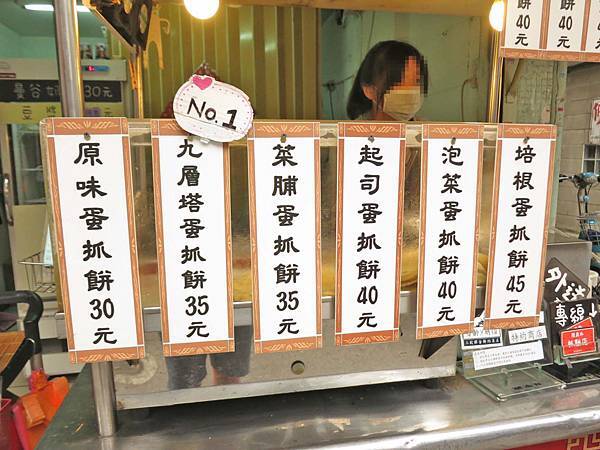 40元
餅40元
餅40元
曼谷奶 30元
No.1
原味蛋抓餅30元
九層塔蛋抓餅35元
菜脯蛋抓餅35元
起司蛋抓餅40元
泡菜蛋抓餅40元
培根蛋抓餅45元
特約商店
外送
專線